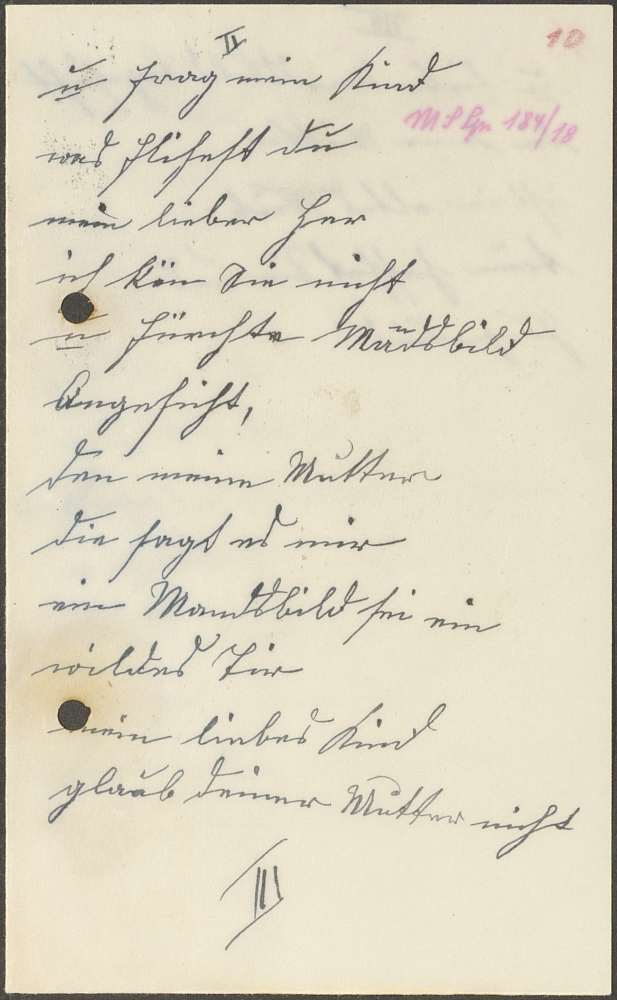 II
10
u frag mein Kind
MS Lgn 184/18
was fliehst du
mein lieber Her
ich kēn Sie nicht
u fürchte Mādsbild
Angesicht,
den meine Mutter
die sagt es mir
ein Mandsbild sei ein
wildes Tir
mein liebes Kind
glaub deiner Mutter nicht
III